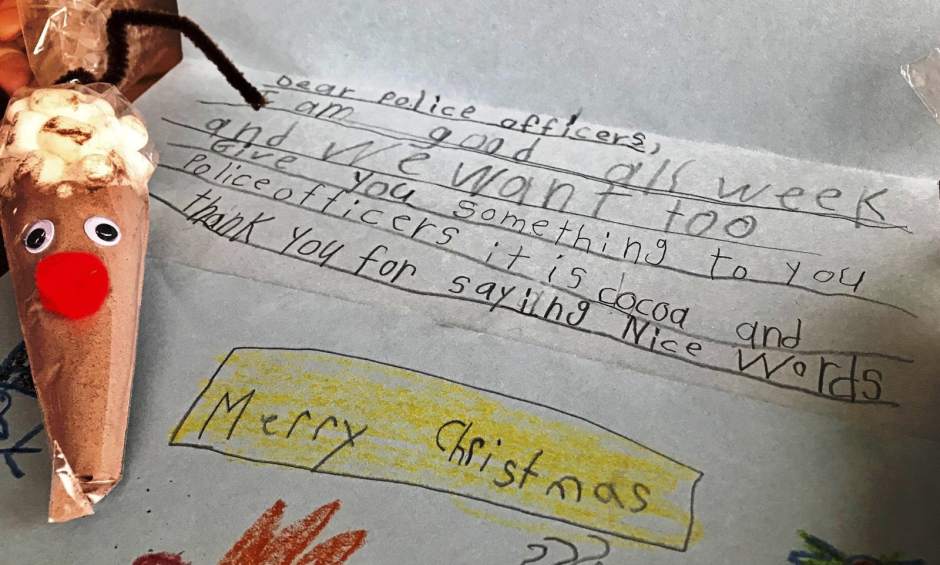 Dear police officers,
I am good all week
and we want too
Give you something to you
Police officers it is cocoa and
thank you for sayiing Nice Words
Merry Christmas